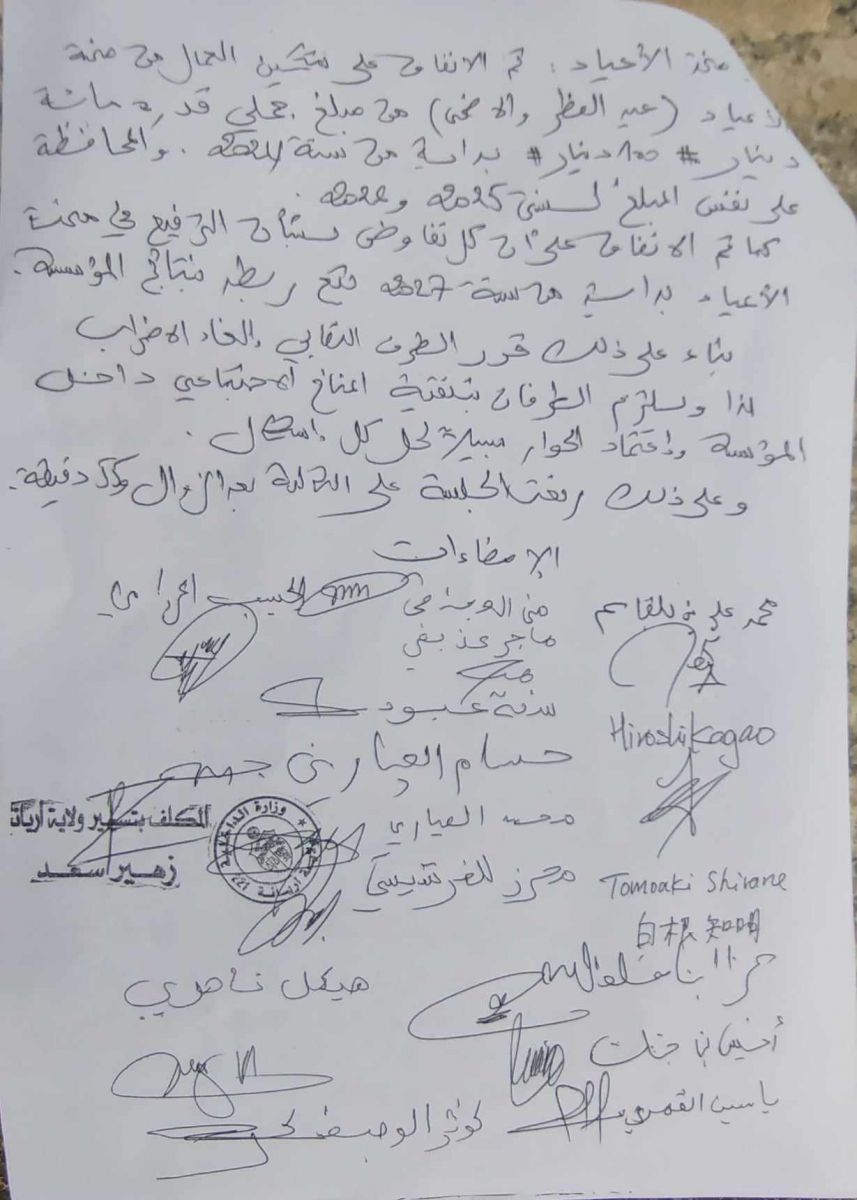 منحة الأعياد: تم الاتفاق على تمكين العمال من منحة
الأعياد (عيد الفطر والاضحى) من مبلغ جملي قدره مائة
دينار # 100 دينار # بداية من سنة 2024. والمحافظة
على نفس المبلغ لسنتي 2025 و 2026.
كما تم الاتفاق على أن كل تفاوض بشأن الترفيع في منحة
الأعياد بداية من سنة 2027 يتم ربطه بنتائج المؤسسة.
بناء على ذلك قرر الطرف النقابي إلغاء الاضراب
هذا ويلتزم الطرفان بتنقية المناخ الاجتماعي داخل
المؤسسة واعتماد الحوار سبيلا لحل كل إشكال.
وعلى ذلك رفعت الجلسة على الثالثة بعد الزوال و دقيقة.
الإمضاءات
محمد علي بلقاسم
منى
الحبيب
ماجر
عبودي
Hiroshi Kagao
حسام العياري
محمد العياري
المكلف بتسيير ولاية أريانة
زهير أسعد
وزارة الداخلية
محرز الفرشيشي
Tomoaki Shirane
白根 知明
هيكل ناصري
ياسين القمودي
كوثر الوصيف